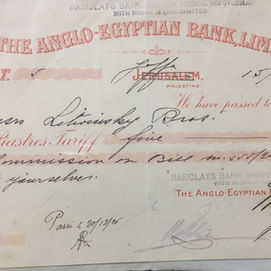 BARCLAYS BANK (DOMINION, COLONIAL AND OVERSEAS)
WITH WHICH IS AMALGAMATED
THE ANGLO-EGYPTIAN BANK, LIM
Jaffa
JERUSALEM.
PALESTINE.
We have passed t
Litwinsky Bros.
Piastres Tariff five
Commission on Bill
yourselves.
BARCLAYS BANK
WITH WHICH
THE ANGLO-EGYPTIAN
Paid 20/12/26